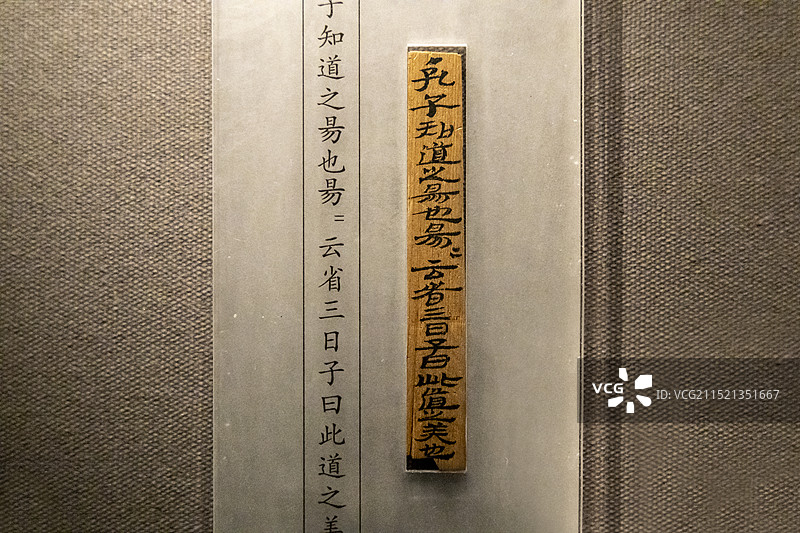 孔子知道之昜也昜=云省三日子曰此道之美也
子知道之昜也昜=云省三日子曰此道之美
VCG
ID: VCG211521351667